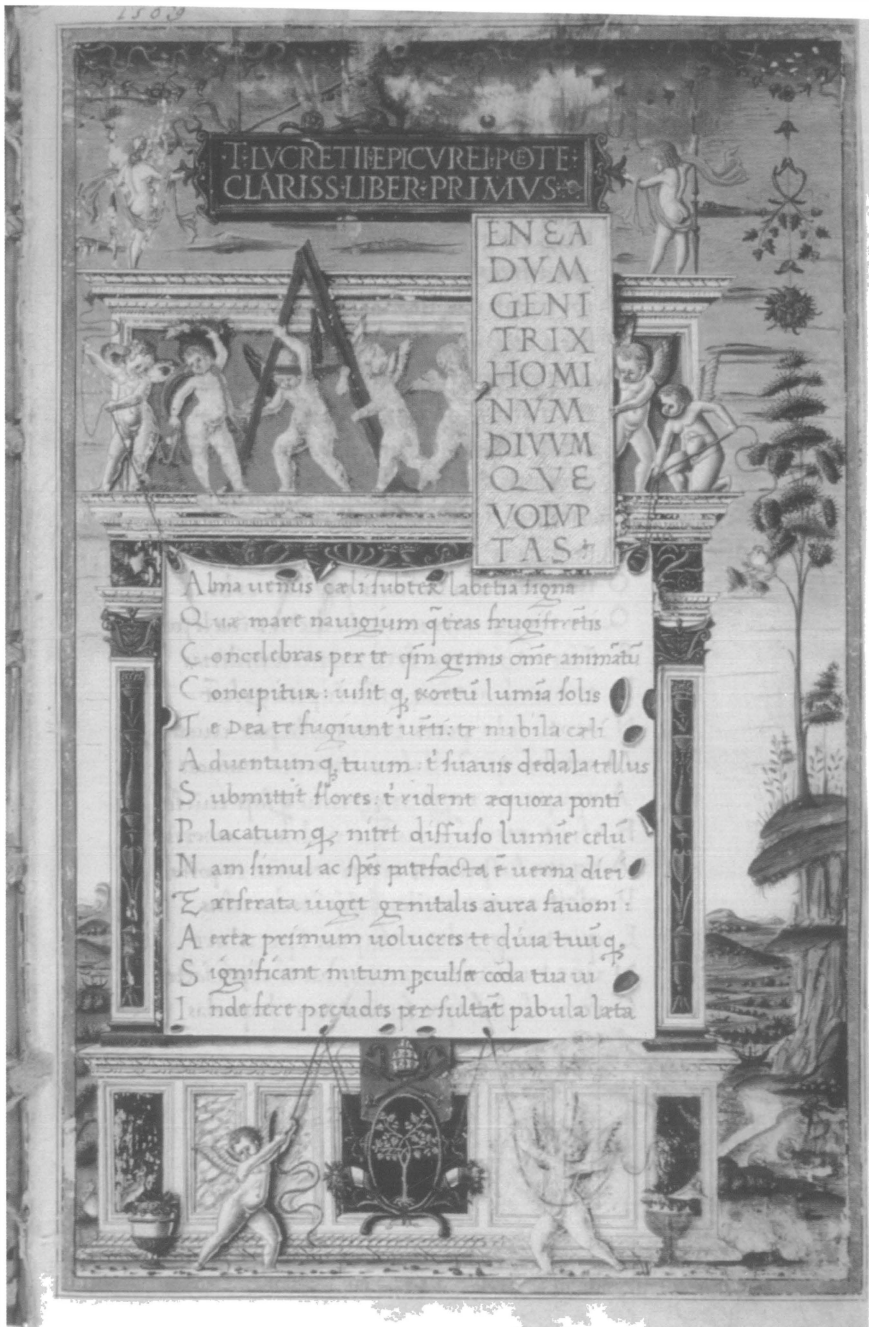 1509
·T·LVCRETII·EPICVREI·POETE·
CLARISS·LIBER·PRIMVS·
A
ENEA
DVM
GENI
TRIX
HOMI
NVM
DIVVM
QVE
VOLVP
TAS
Alma uenus cæli subter labētia signa
Quæ mare nauigium q̄ t̄ras frugiferētis
Concelebras per te qm̄ genus om̄e animātū
Concipitur: uisit q; exortū lumīa solis
Te Dea te fugiunt uēti: te nubila cæli
Aduentumq; tuum: t' suauis dedala tellus
Submittit flores: t' rident æquora ponti
Placatumq; nitet diffuso lumīe celū
Nam simul ac spēs patefacta ē uerna diei
Et reserata uiget genitalis aura fauoni:
Aeriæ primum uolucres te diua tuūq;
Significant initum ꝑculsæ coda tua ui
Inde fere pecudes per sultāt pabula læta